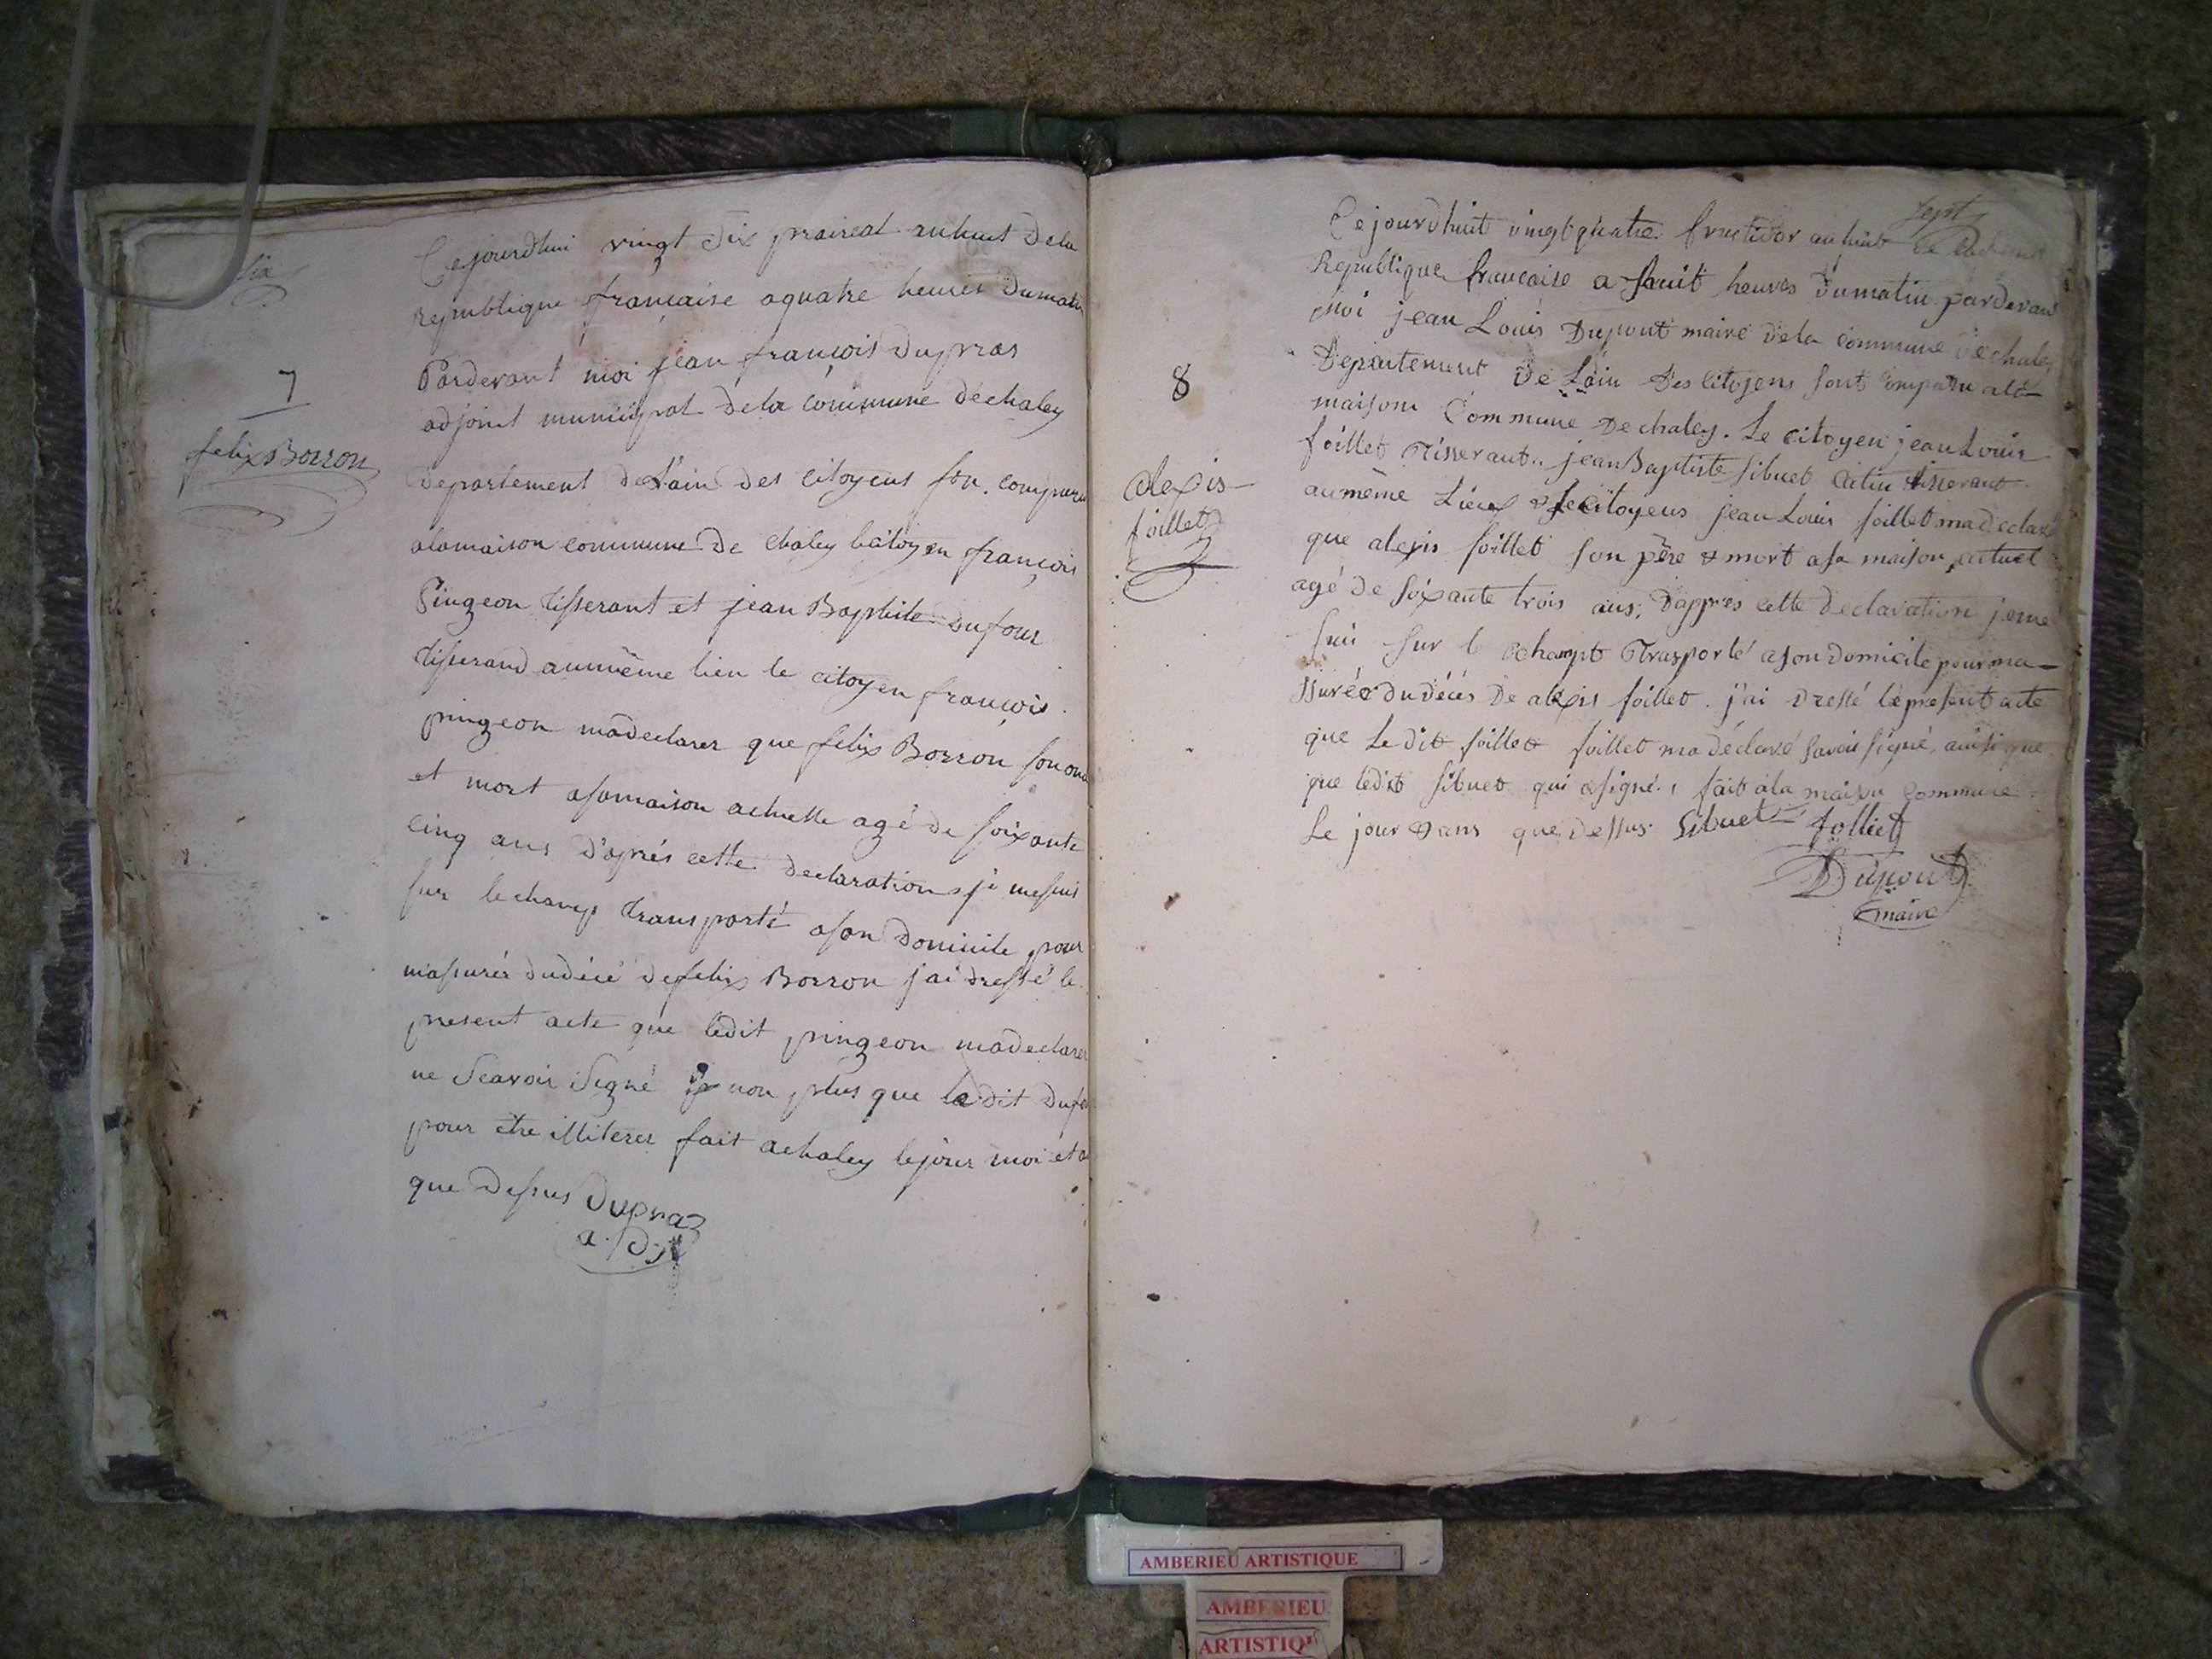 six
7
felix Borron
Cejourdhui vingt dix prairial an huit dela
republique française aquatre heures dumatin
Pardevant moi jean françois dupras
adjoint municipal dela commune dechaley
departement deLain des citoyens son comparu
alamaison commune De chaley lecitoyen françois
Pingeon tisserant et jean Baptiste Dufour
tisserand aumême lieu le citoyen françois
pingeon madeclarer que felix Borron son oncle
et mort asamaison actuelle agé de soixante
cinq ans d'aprés cette declaration je mesuis
sur lechamp transporté ason Domicile pour
massurér dudécé defelix Borron jai dressé le
present acte que ledit pingeon madeclarer
ne Scavoir Signé non plus que le dit Dufour
pour être illiterer fait achaley lejour moi et an
que Dessus Dupraz
a. Djt
sept
Cejourdhuit vingt quatre fructidor an huit de
Republique francaise a huit heures dumatin pardevant
moi jean Louis Dupont maire dela commune dechaley
Departement De Lain Des citoyens sont comparu ala
maison Commune De chaley. Le citoyen jean Louis
foillet Tisserant.. jean Baptiste sibuet tisserant
aumême Lieux citoyens jean Louis foillet madeclaré
que alexis foillet son père & mort asa maison actuel
agé de soixante trois ans; Dappres cette declaration jeme
suis sur le champt Trasporté ason Domicile pour ma
ssurér du décés De alexis foillet. j'ai Dressé le present acte
que Le dit foillet foillet ma déclaré savoir signé, ainsi que
que ledit sibuet qui asigné. fait àla maison Commune
Le jour & ans que Dessus. Sibuet folliet
Dupont
maire
8
alexis
foillet
AMBERIEU ARTISTIQUE
AMBERIEU
ARTISTIQU